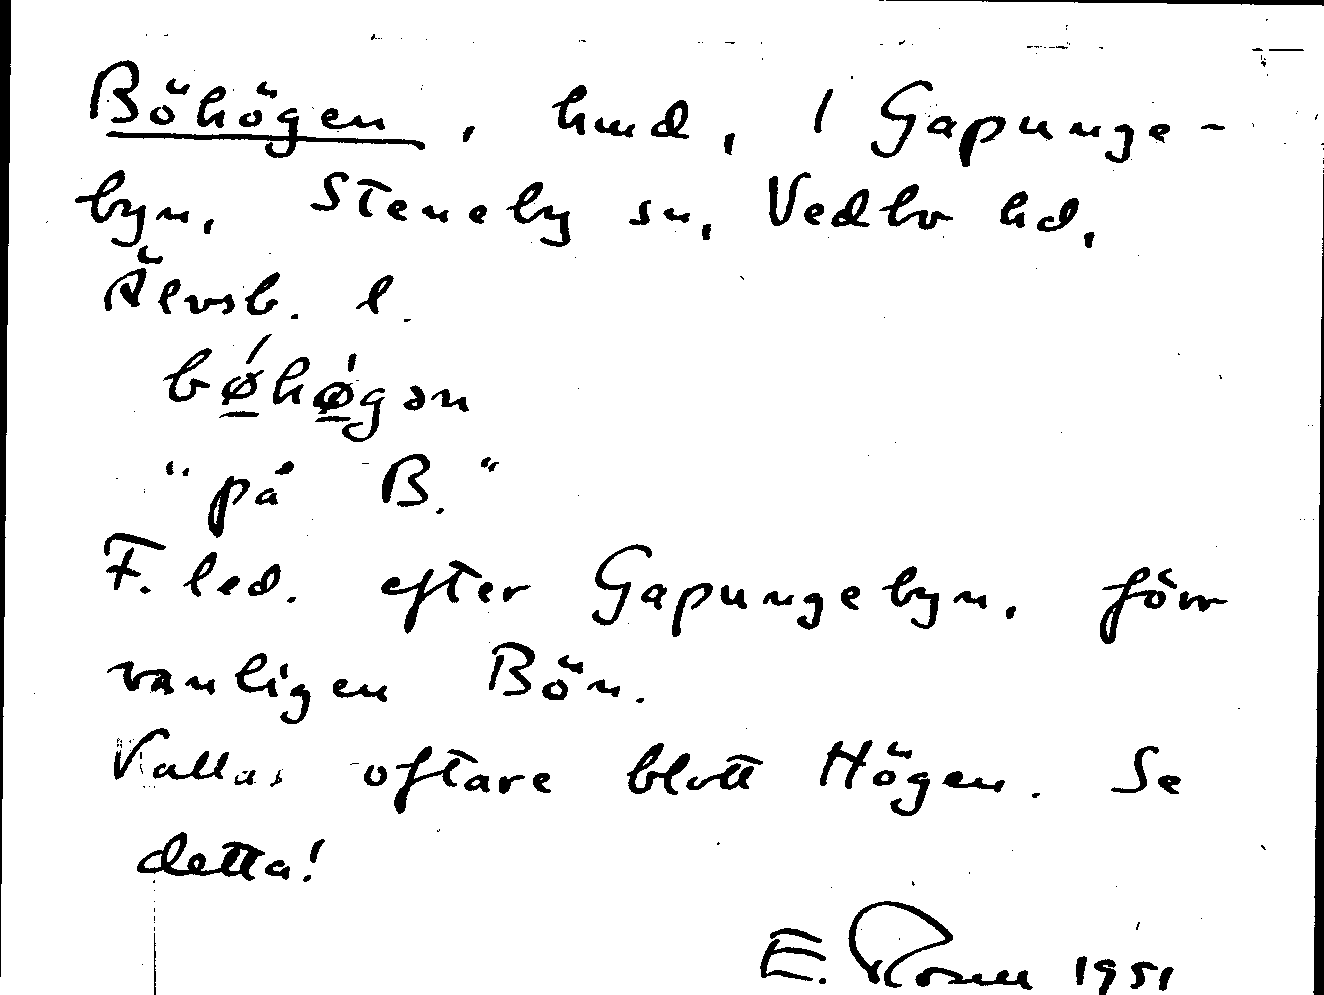 Böhögen, hmd, i Gapunge-
byn, Steneby sn, Vedbo hd,
Älvsb. l.
bǿ̱hø̱̀gən
"på B."
F. led. efter Gapungebyn, förr
vanligen Bön.
Kallas oftare blott Högen. Se
detta!
E. Rosell 1951